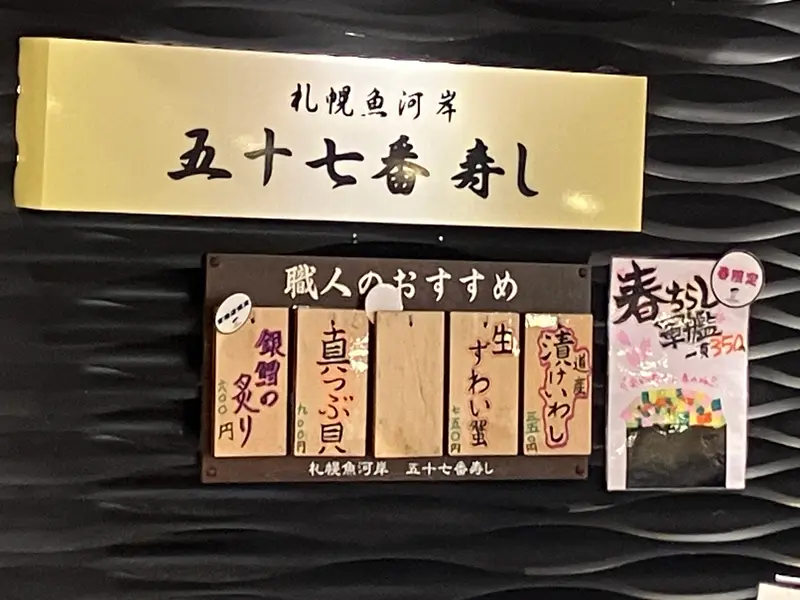 札幌魚河岸
五十七番 寿し
職人のおすすめ
道産
漬けいわし
三五〇円
生ずわい蟹
七五〇円
真つぶ貝
九〇〇円
銀鱈の炙り
六〇〇円
札幌魚河岸 五十七番寿し
春限定
春ちらし
軍艦
一貫350